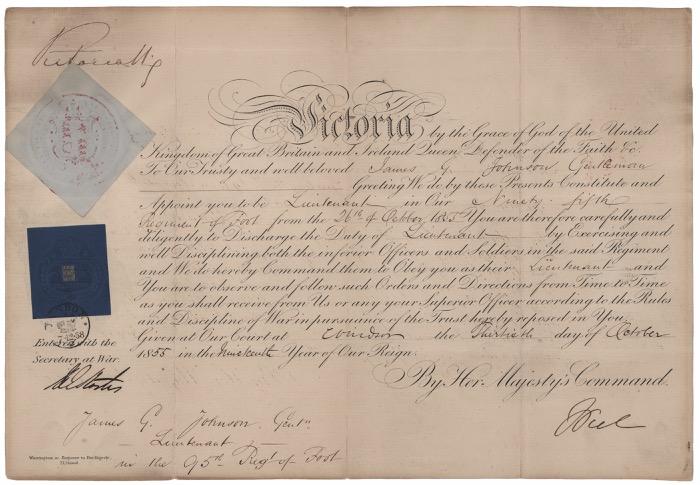 Victoria
Victoria by the Grace of God of the United
Kingdom of Great Britain and Ireland Queen Defender of the Faith &c.
To Our Trusty and well beloved James G. Johnson, Gentleman
Greeting We do by these Presents Constitute and
Appoint you to be Lieutenant in Our Ninety fifth
Regiment of Foot from the 26th of October 1855 You are therefore carefully and
diligently to Discharge the Duty of Lieutenant by Exercising and
well Disciplining both the inferior Officers and Soldiers in the said Regiment
and We do hereby Command them to Obey you as their Lieutenant and
You are to observe and follow such Orders and Directions from Time to Time
as you shall receive from Us or any your Superior Officer according to the Rules
and Discipline of War in pursuance of the Trust hereby reposed in You.
Given at Our Court at Windsor the Thirtieth day of October
1855 in the Nineteenth Year of Our Reign.
By Her Majesty's Command.
Entered with the
Secretary at War.
James G. Johnson. Gentn
Lieutenant
in the 95th Regt of Foot